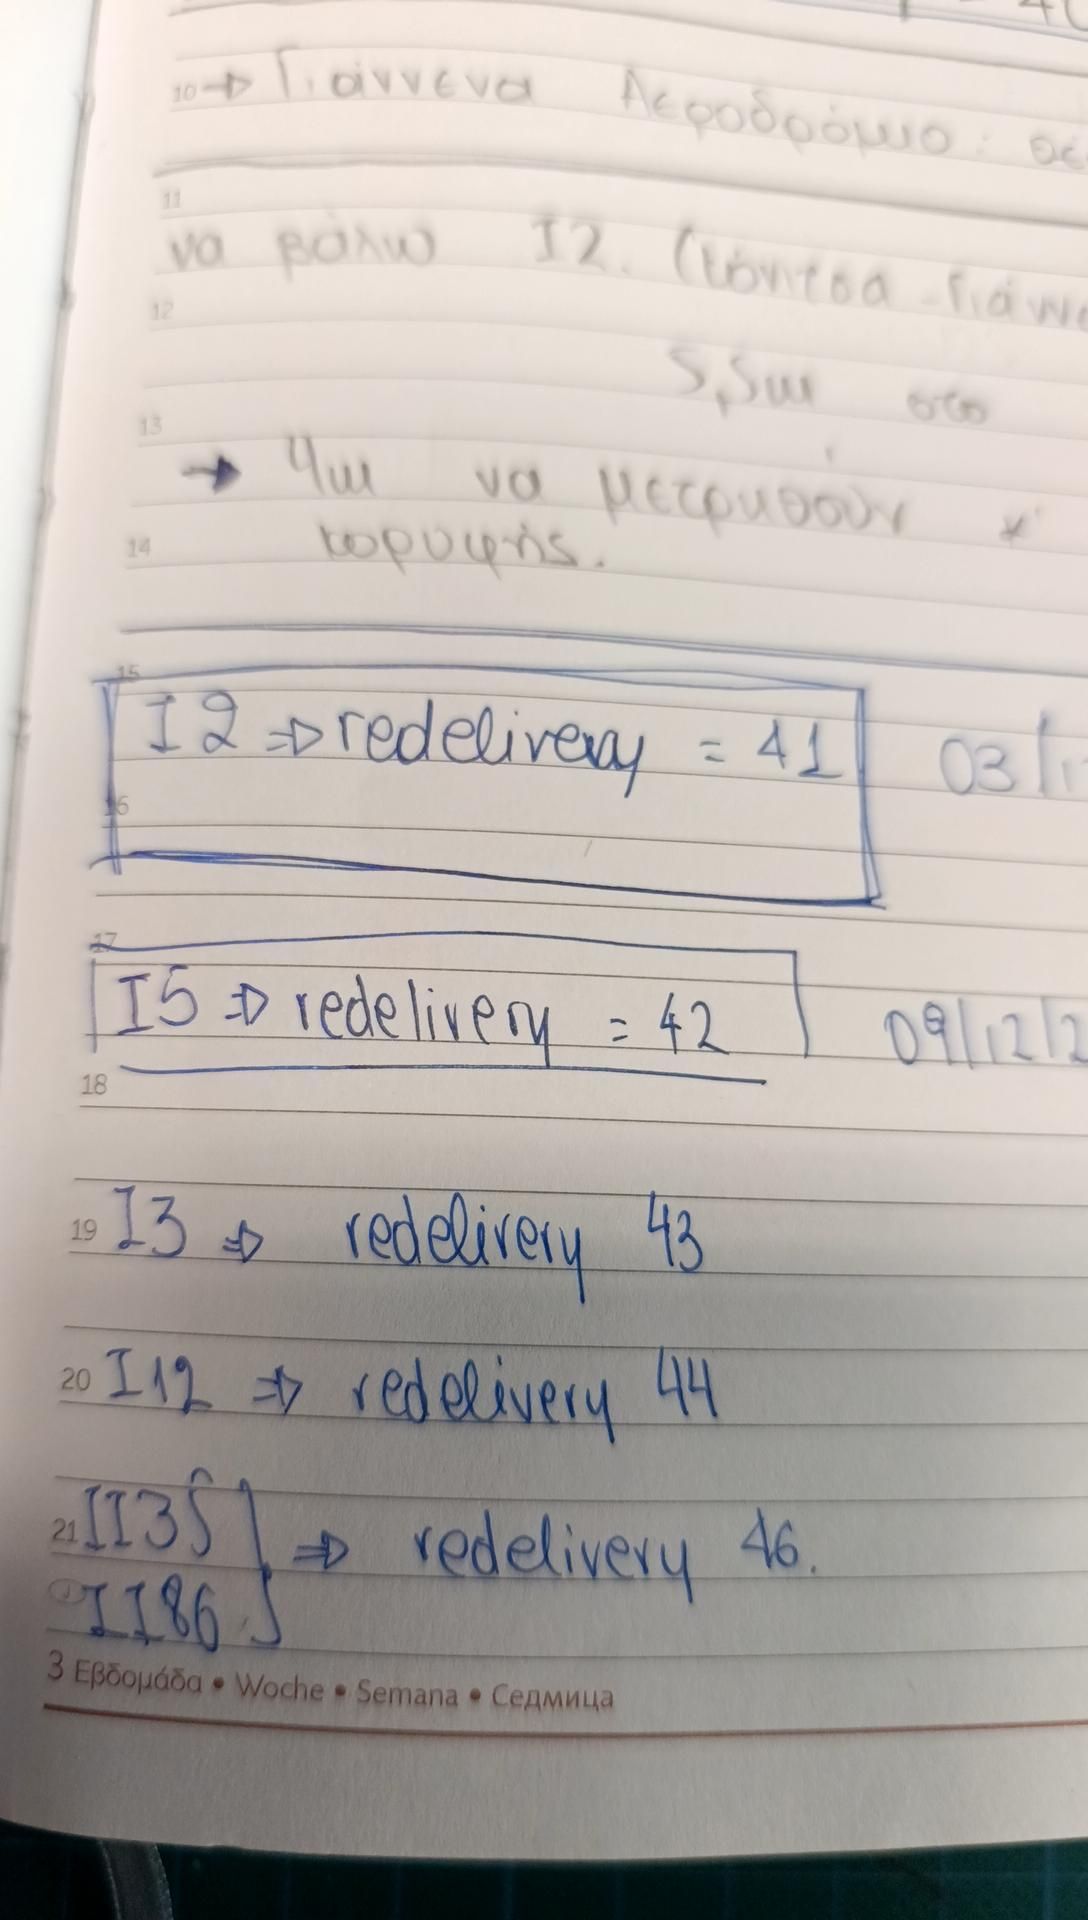 10 → Γιάννενα Αεροδρόμιο :
11
να βάλω I2. (Κόνιτσα - Γιάννε
12
5,5m στο
13
→ 4m να μετρηθούν
14 κορυφής.
15
I2 ⇒ redelivery = 41 03/1
16
17
I5 ⇒ redelivery = 42 09/12/2
18
19 I3 ⇒ redelivery 43
20 I12 ⇒ redelivery 44
21 II35 ⇒ redelivery 46.
II86
3 Εβδομάδα • Woche • Semana • Седмица